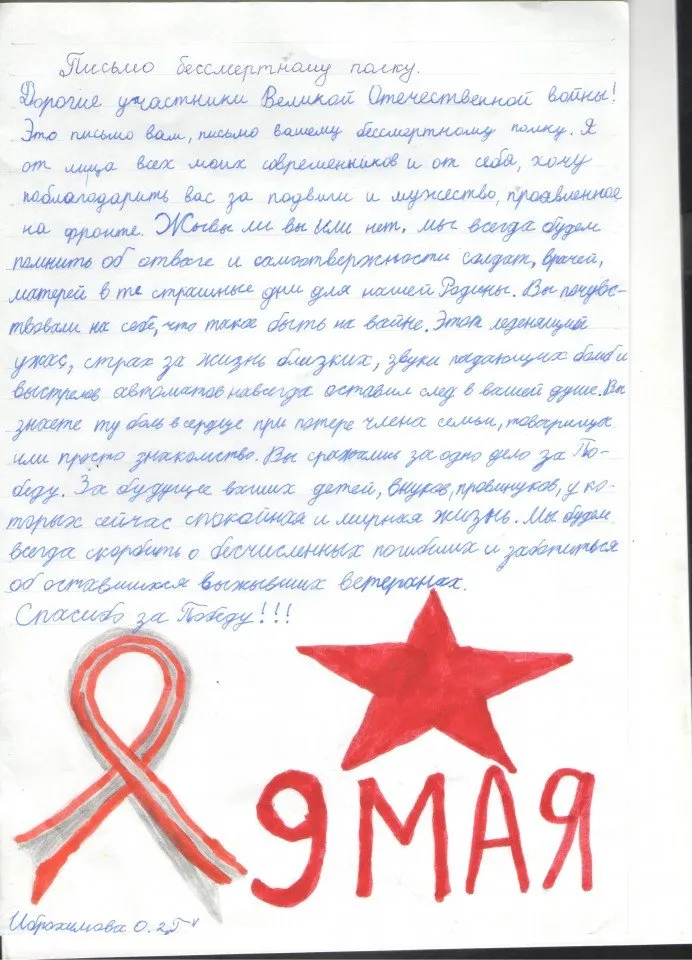 Письмо бессмертному полку.
Дорогие участники Великой Отечественной войны!
Это письмо вам, письмо вашему бессмертному полку. Я
от лица всех моих современников и от себя, хочу
поблагодарить вас за подвиги и мужество, проявленное
на фронте. Жывы ли вы или нет, мы всегда будем
помнить об отваге и самоотвержности солдат, врачей,
матерей в те страшные дни для нашей Родины. Вы почувс-
твовали на себе, что такое быть на вайне. Этот леденящий
ужас, страх за жизнь близких, звуки падающих бомб и
выстрелов автоматов навсегда оставил след в вашей душе. Вы
знаете ту боль в сердце при потере члена семьи, товарища
или просто знакомство. Вы сражались за одно дело за По-
беду. За будущее ваших детей, внуков, правнуков, у ко-
торых сейчас спокойная и мирная жизнь. Мы будем
всегда скорбить о бесчисленных погибших и заботиться
об оставшихся выжывших ветеранах.
Спасибо за Победу!!!
9 МАЯ
Иброхимова О. 2„Г"